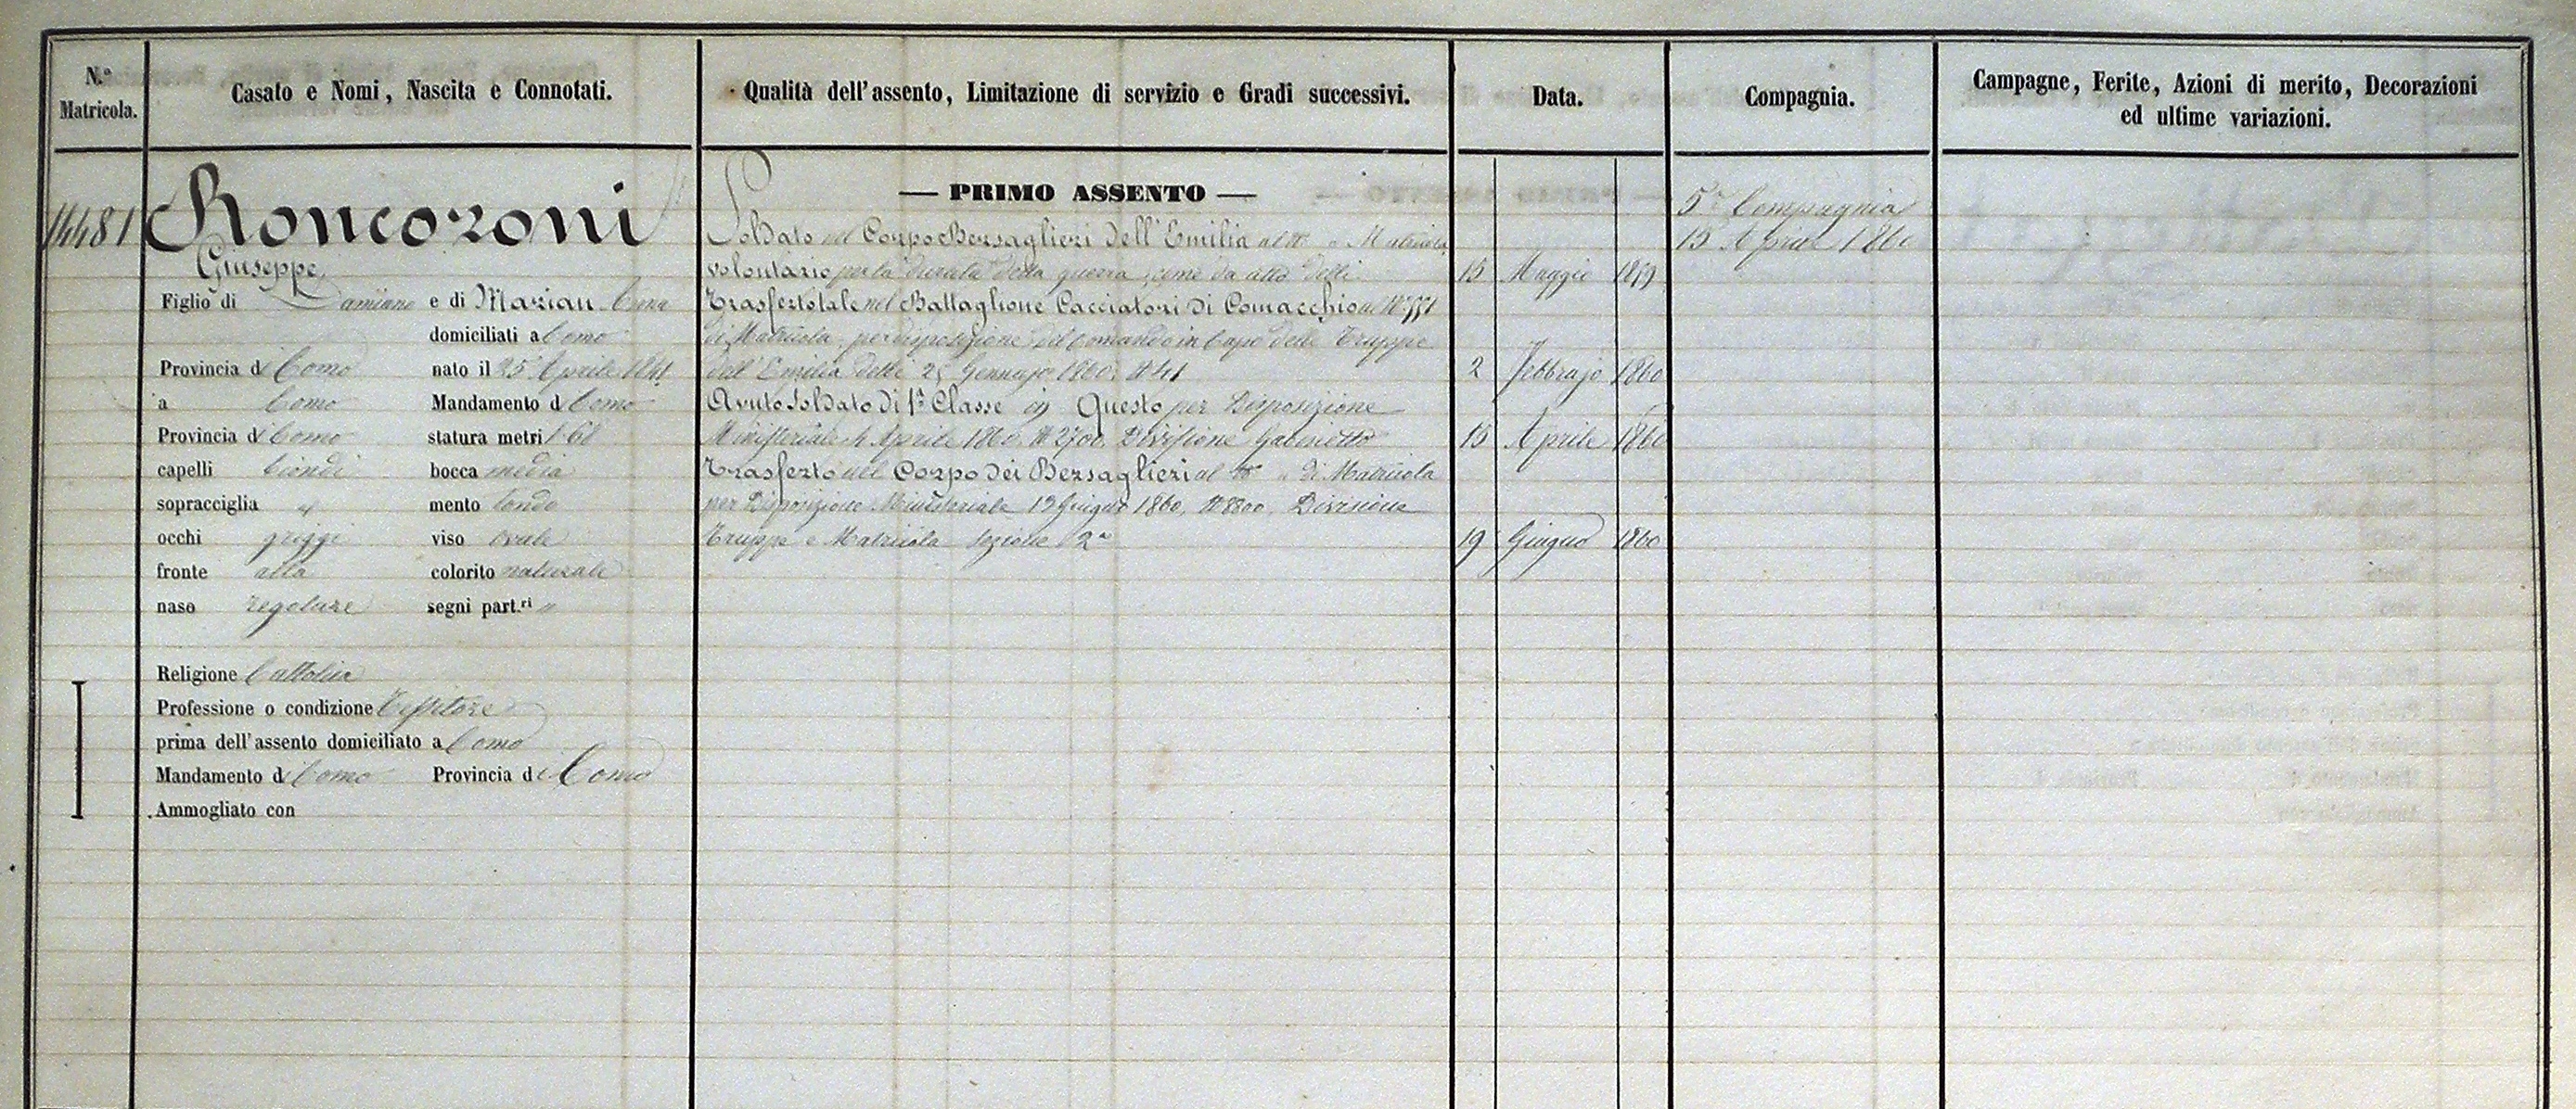 N.º Matricola.
Casato e Nomi, Nascita e Connotati.
Qualità dell'assento, Limitazione di servizio e Gradi successivi.
Data.
Compagnia.
Campagne, Ferite, Azioni di merito, Decorazioni
ed ultime variazioni.
14481
Roncoroni
Giuseppe
Figlio di Damiano e di Marian Anna
domiciliati a Como
Provincia di Como nato il 25 Aprile 1841
a Como Mandamento di Como
Provincia di Como statura metri 1 68
capelli biondi bocca media
sopracciglia " mento tondo
occhi griggi viso ovale
fronte alta colorito naturale
naso regolare segni part.ri "
Religione Cattolica
Professione o condizione Tessitore
prima dell'assento domiciliato a Como
Mandamento di Como Provincia di Como
Ammogliato con
— PRIMO ASSENTO —
Soldato nel Corpo Bersaglieri dell'Emilia al Nº " Matricola
volontario per la durata della guerra, come da atto delli 15 Maggio 1859
Trasferto tale nel Battaglione Cacciatori di Comacchio al Nº 551
di Matricola, per disposizione del Comando in Capo delle Truppe
dell'Emilia delli 25 Gennajo 1860, Nº 41 2 Febbrajo 1860
Avuto Soldato di 1ª Classe in Questo per Disposizione
Ministeriale 4 Aprile 1860, Nº 2700, Divisione Gabinetto 15 Aprile 1860
Trasferto nel Corpo dei Bersaglieri al Nº " di Matricola
per Disposizione Ministeriale 19 Giugno 1860, Nº 8300, Divisione
Truppa e Matricola Sezione 2ª 19 Giugno 1860
5ª Compagnia
15 Aprile 1860